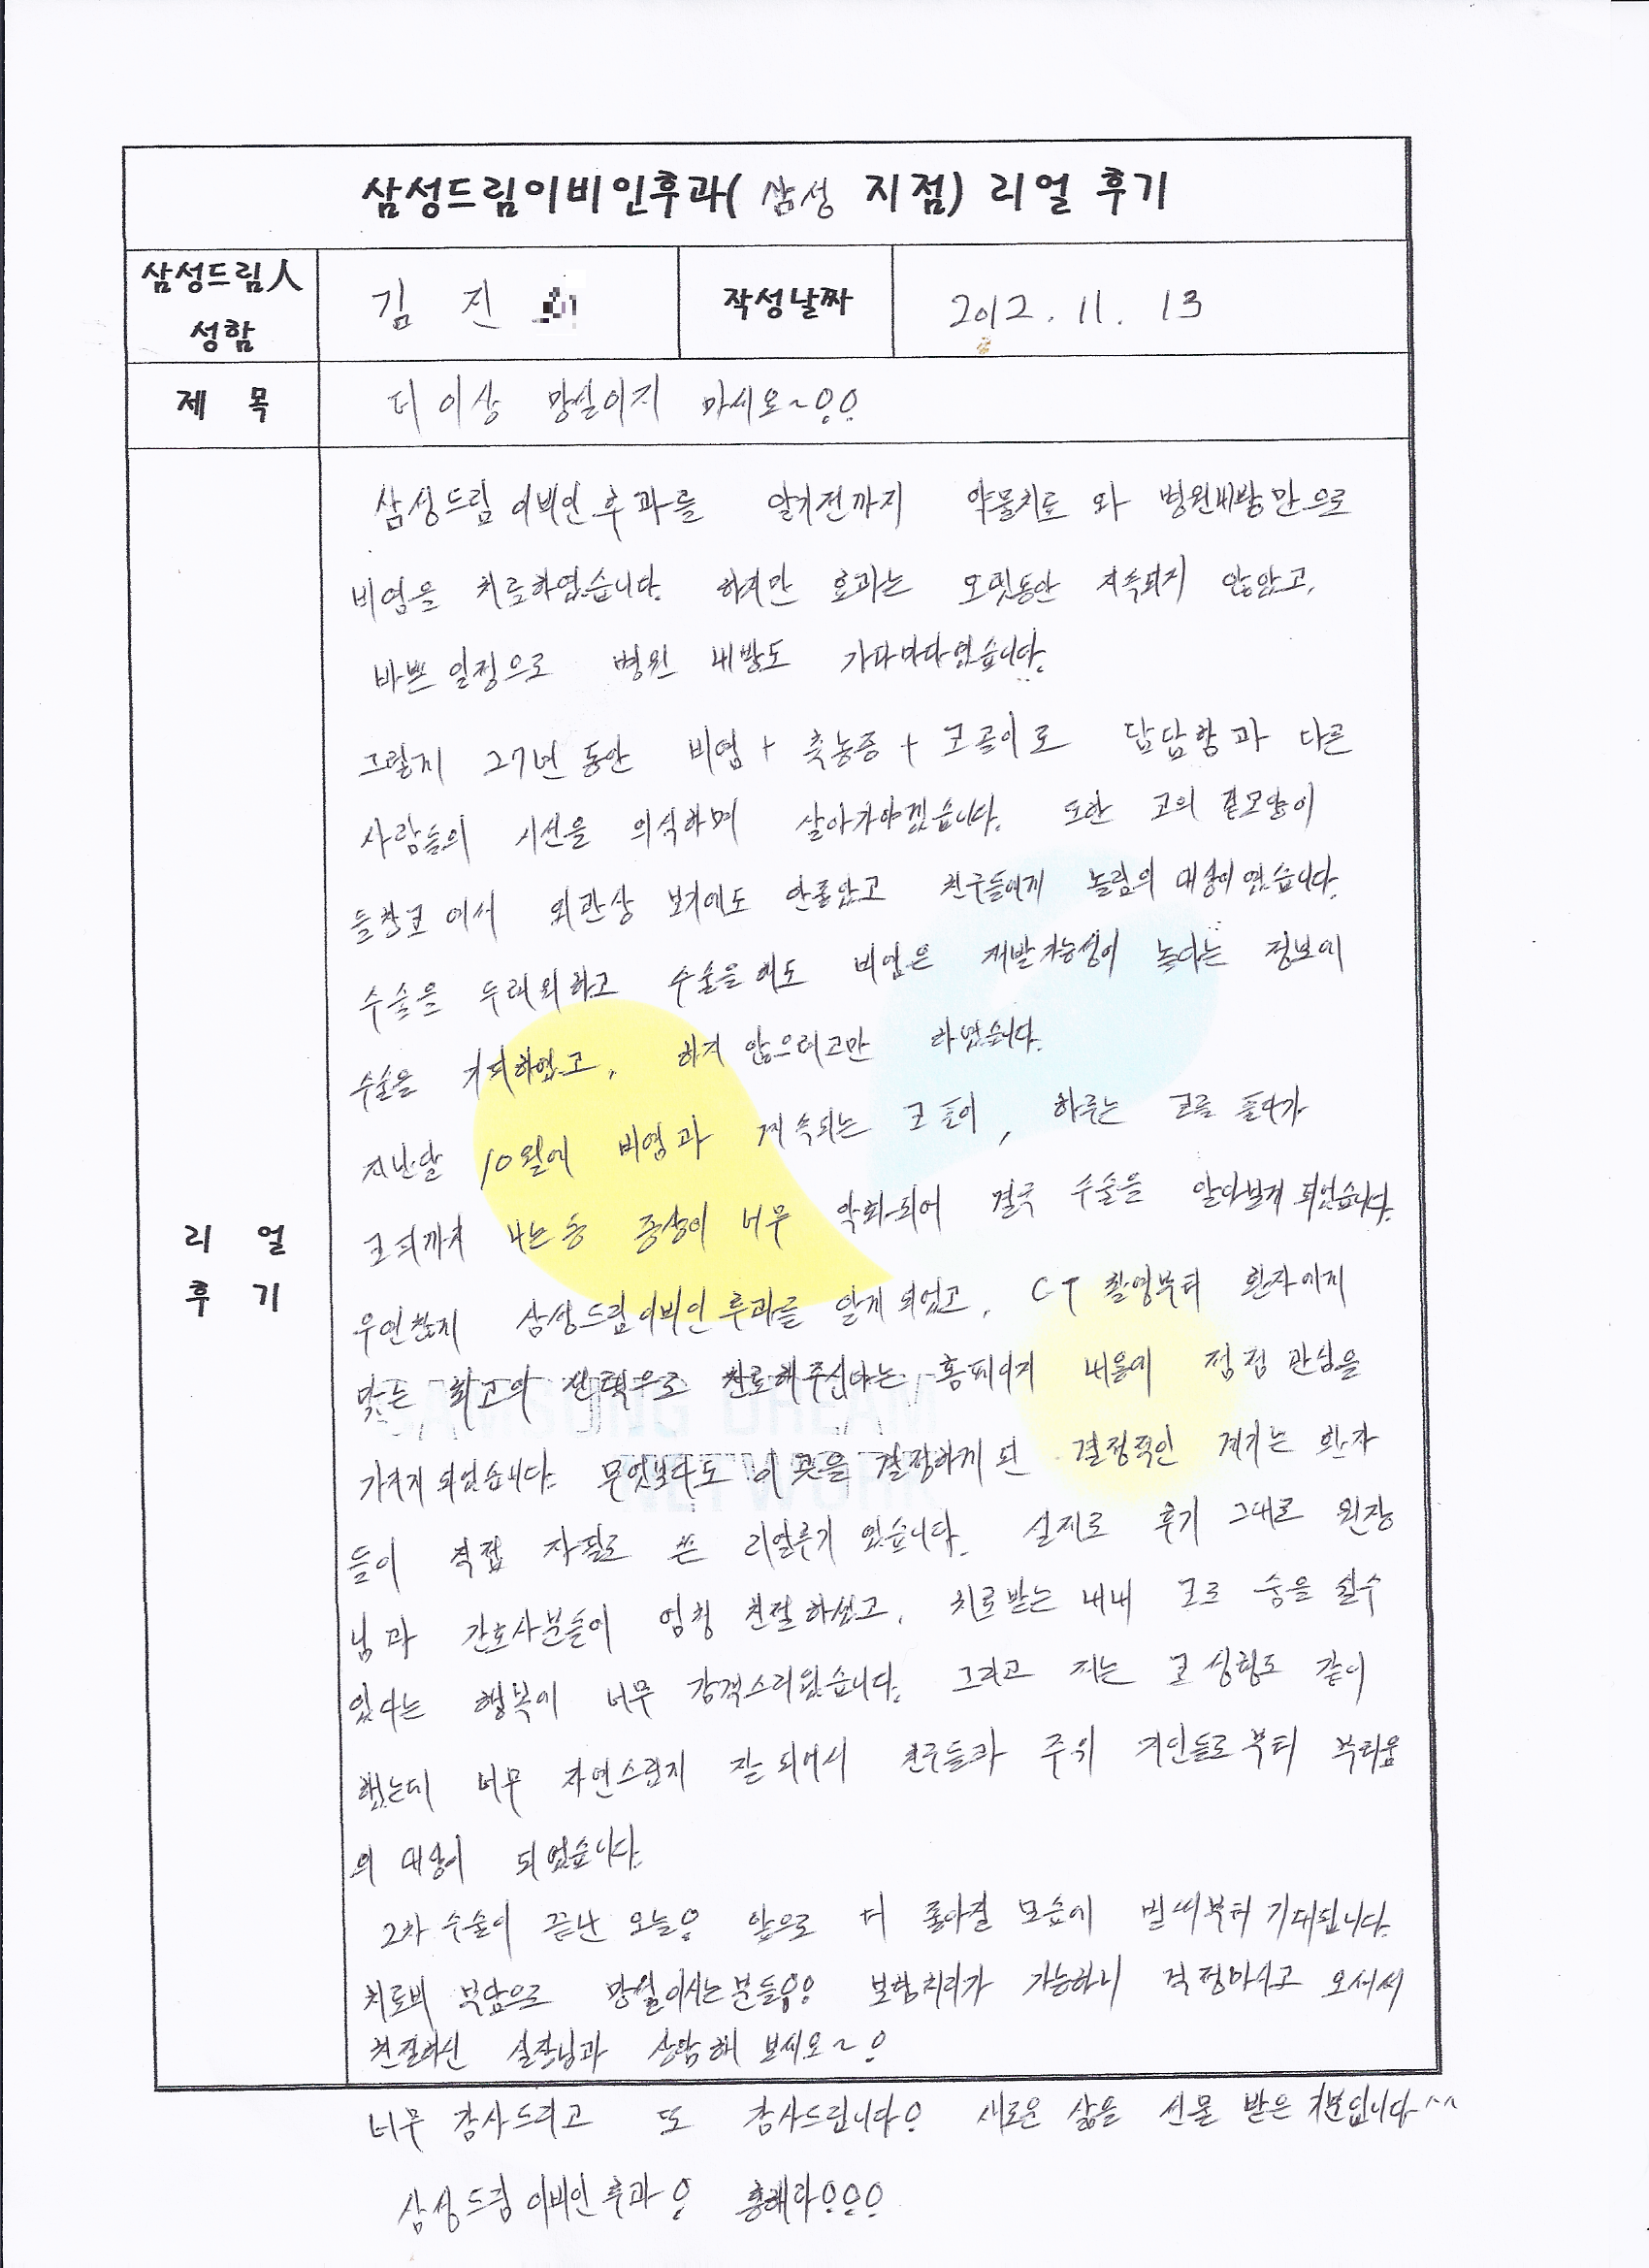 삼성드림이비인후과( 삼성 지점) 리얼 후기
삼성드림人 성함
김 진
작성날짜
2012. 11. 13
제 목
더 이상 망설이지 마세요~!!
리 얼
후 기
삼성드림이비인후과를 알기전까지 약물치료와 병원내방만으로
비염을 치료하였습니다. 하지만 효과는 오랫동안 지속되지 않았고,
바쁜 일정으로 병원 내방도 가다마다였습니다.
그렇게 27년 동안 비염 + 축농증 + 코골이로 답답함과 다른
사람들의 시선을 의식하며 살아가야겠습니다. 또한 코의 겉모양이
들창코여서 외관상 보기에도 안좋았고 친구들에게 놀림의 대상이었습니다.
수술을 두려워하고 수술을 해도 비염은 재발가능성이 높다는 정보에
수술을 기피하였고, 하지 않으려고만 하였습니다.
지난달 10월에 비염과 계속되는 코골이, 하루는 코를 풀다가
코피까지 나는 등 증상이 너무 악화되어 결국 수술을 알아보게 되었습니다.
우연찮게 삼성드림이비인후과를 알게 되었고, CT 촬영부터 환자에게
맞는 최고의 선택으로 진료해주신다는 홈페이지 내용에 점점 관심을
가지게 되었습니다. 무엇보다도 이 곳을 결정하게 된 결정적인 계기는 환자
들이 직접 자필로 쓴 리얼후기 였습니다. 실제로 후기 그대로 원장
님과 간호사분들이 엄청 친절하셨고, 치료받는 내내 코로 숨을 쉴수
있다는 행복이 너무 감격스러웠습니다. 그리고 저는 코 성형도 같이
했는데 너무 자연스럽게 잘 되어서 친구들과 주위 지인들로부터 부러움
의 대상이 되었습니다.
2차 수술이 끝난 오늘! 앞으로 더 좋아질 모습에 벌써부터 기대됩니다.
치료비 부담으로 망설이시는 분들!! 보험처리가 가능하니 걱정마시고 오셔서
친절하신 실장님과 상담해 보세요~!
너무 감사드리고 또 감사드립니다! 새로운 삶을 선물 받은 기분입니다^^
삼성드림이비인후과! 흥해라!!!
SAMSUNG DREAM
NETWORK